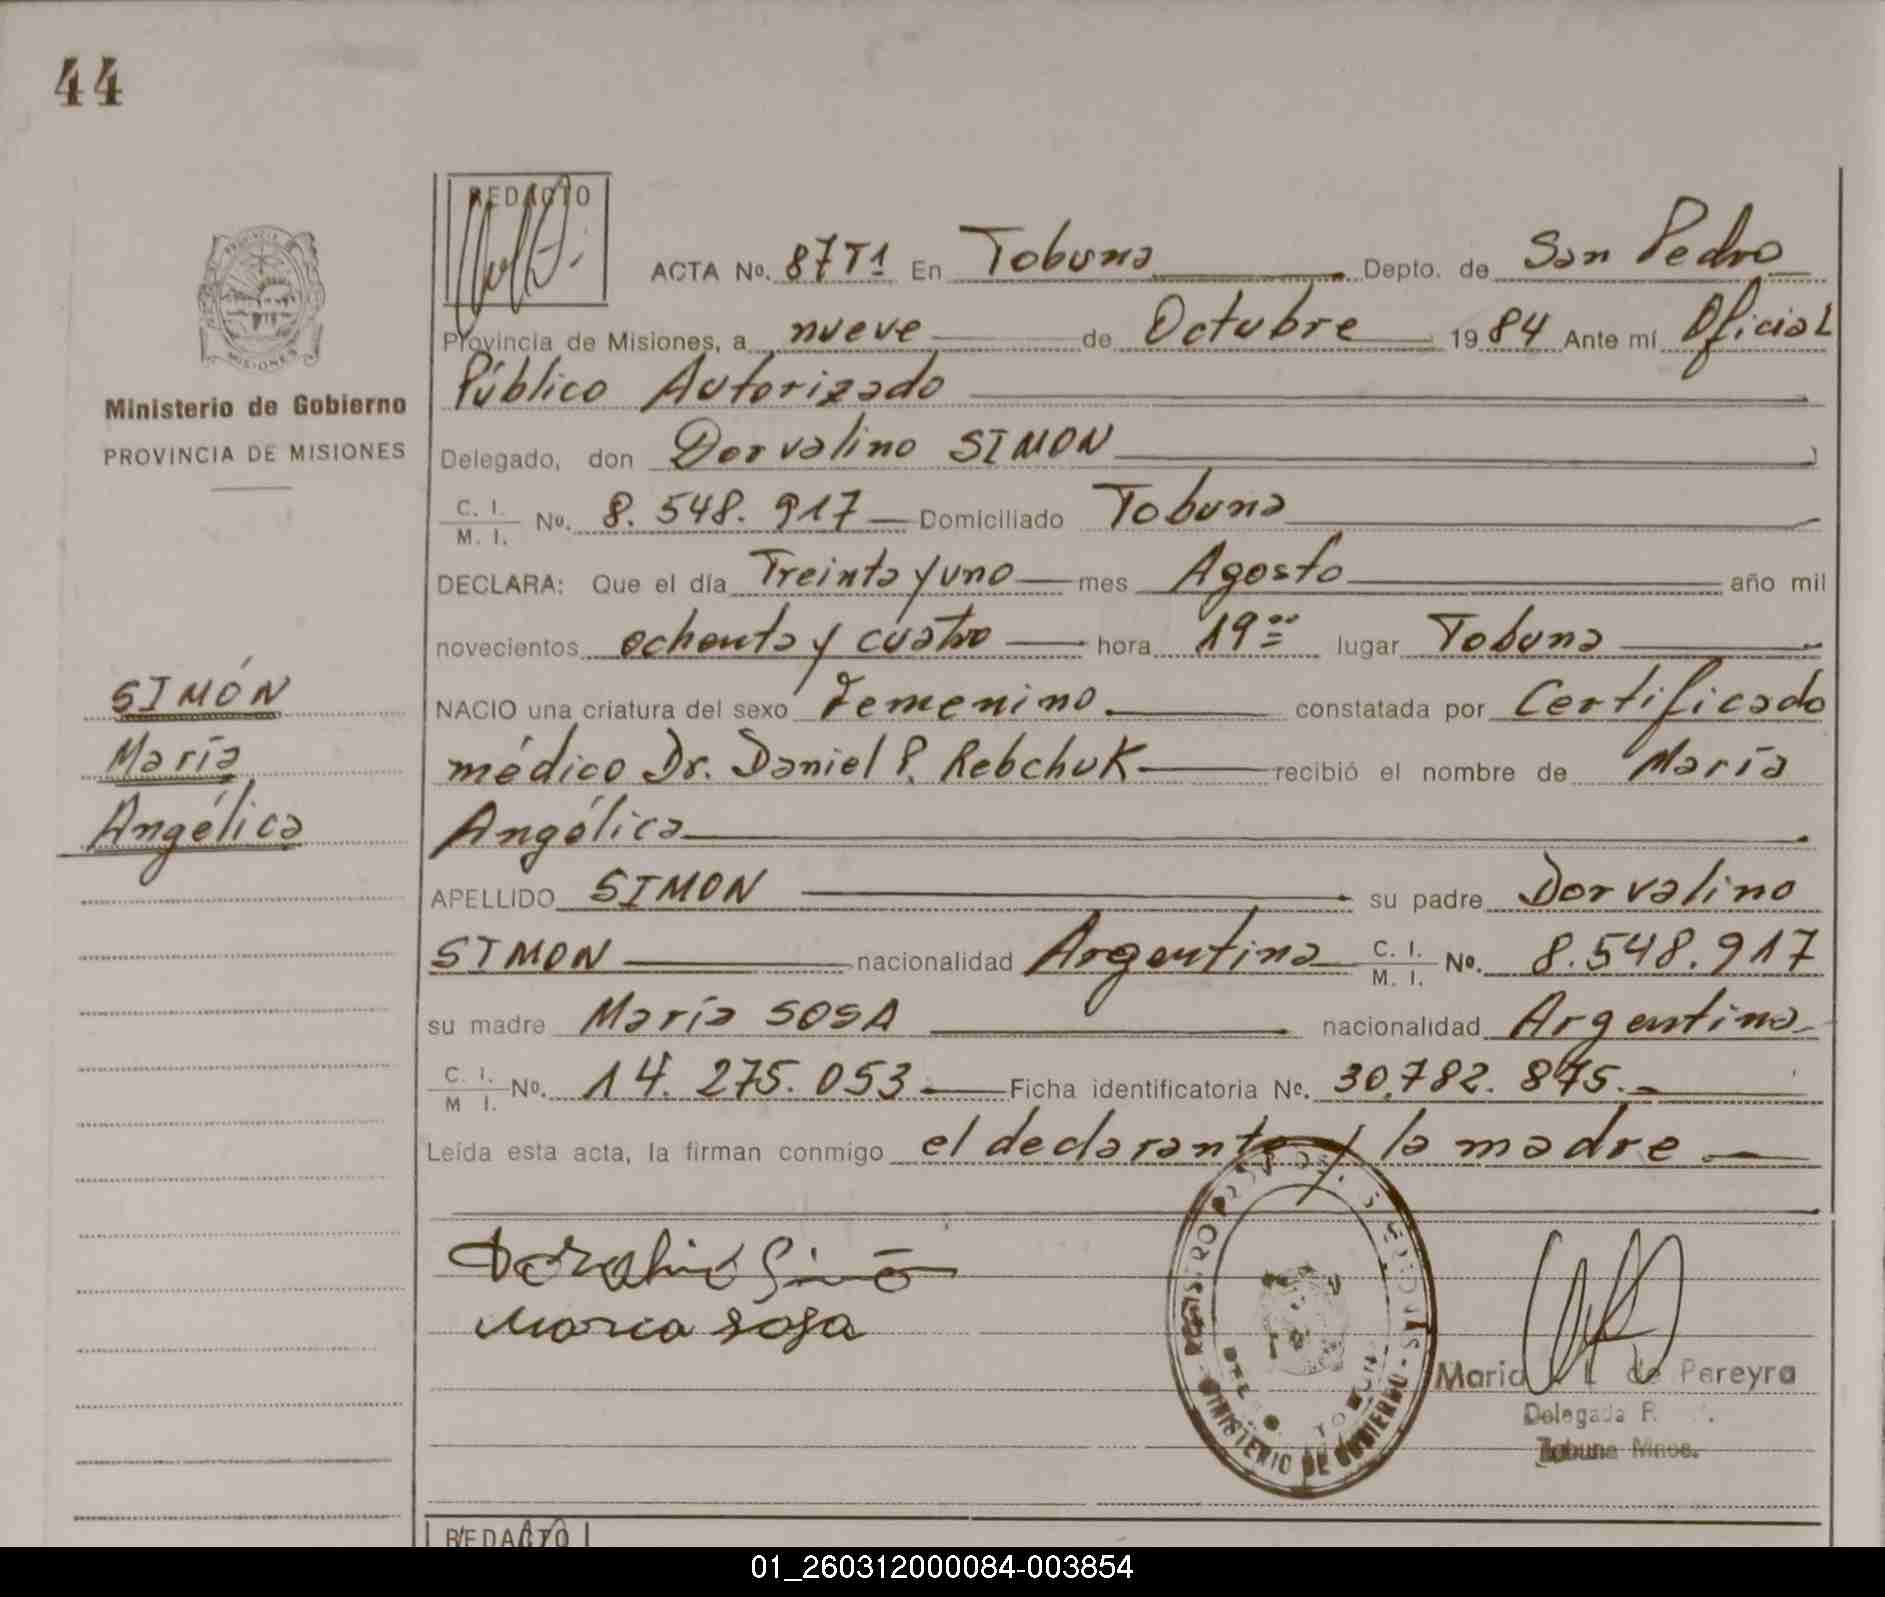 44
REDACTO
ACTA No. 87 T1 En Tobuna Depto. de San Pedro
Provincia de Misiones, a nueve de Octubre 1984 Ante mí Oficial
Público Autorizado
Delegado, don Dorvalino SIMON
C. I.
M. I.
No. 8.548.917 Domiciliado Tobuna
DECLARA: Que el día Treinta y uno mes Agosto año mil
novecientos ochenta y cuatro hora 19 lugar Tobuna
NACIO una criatura del sexo Femenino. constatada por Certificado
médico Dr. Daniel P. Rebchuk recibió el nombre de María
Angélica
APELLIDO SIMON su padre Dorvalino
SIMON nacionalidad Argentina C. I.
M. I.
No. 8.548.917
su madre María SOSA nacionalidad Argentina
C. I.
M I.
No. 14.275.053 Ficha identificatoria No. 30.782.875.
Leída esta acta, la firman conmigo el declarante y la madre
PROVINCIA
MISIONES
Ministerio de Gobierno
PROVINCIA DE MISIONES
SIMÓN
María
Angélica
Dorvalino Simō
Maria Sosa
MINISTERIO DE GOBIERNO
Maria de Pereyra
Delegada
Tobuna Mnes.
REDACTO
01_260312000084-003854